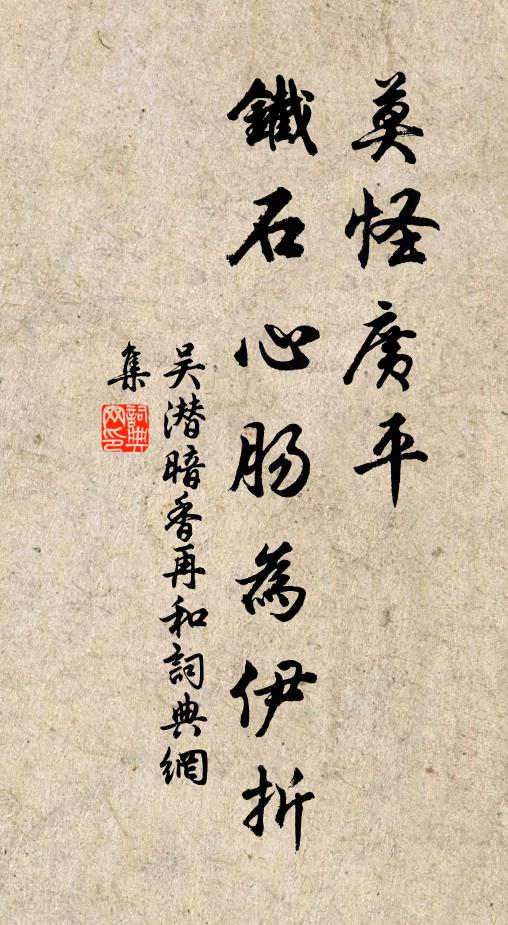 莫怪廣平
鐵石心腸為伊折
吴潜暗香再和詞典網
集
詞典網印